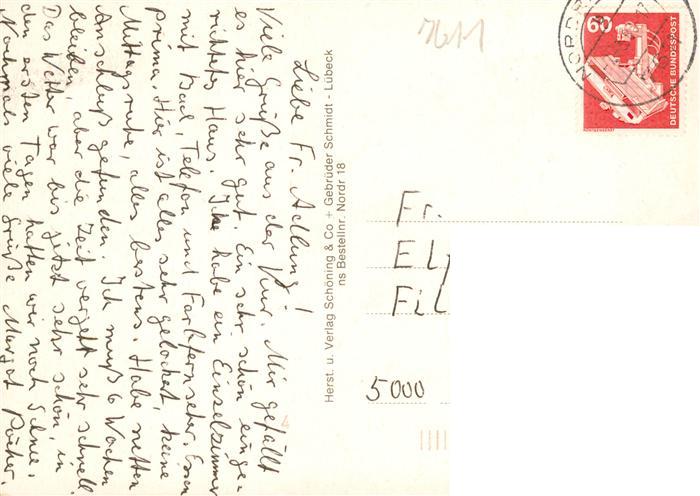 Liebe Fr. Adlung!
Viele Grüße aus der Kur. Mir gefällt
es hier sehr gut. Ein sehr schön einge-
richtetes Haus. Ich habe ein Einzelzimmer
mit Bad, Telefon und Farbfernseher. Essen
prima. Hier ist alles sehr gelockert, keine
Mittagsruhe, alles bestens. Habe netten
Anschluß gefunden. Ich muß 6 Wochen
bleiben, aber die Zeit vergeht sehr schnell.
Das Wetter war bis jetzt sehr schön, in
den ersten Tagen hatten wir noch Schnee.
Nochmals viele Grüße Margot
Herst. u. Verlag Schöning & Co + Gebrüder Schmidt - Lübeck
ns Bestellnr. Nordr 18
60
DEUTSCHE BUNDESPOST
RÖNTGENGERÄT
NORDR
Fr.
El
Fil
5000
4